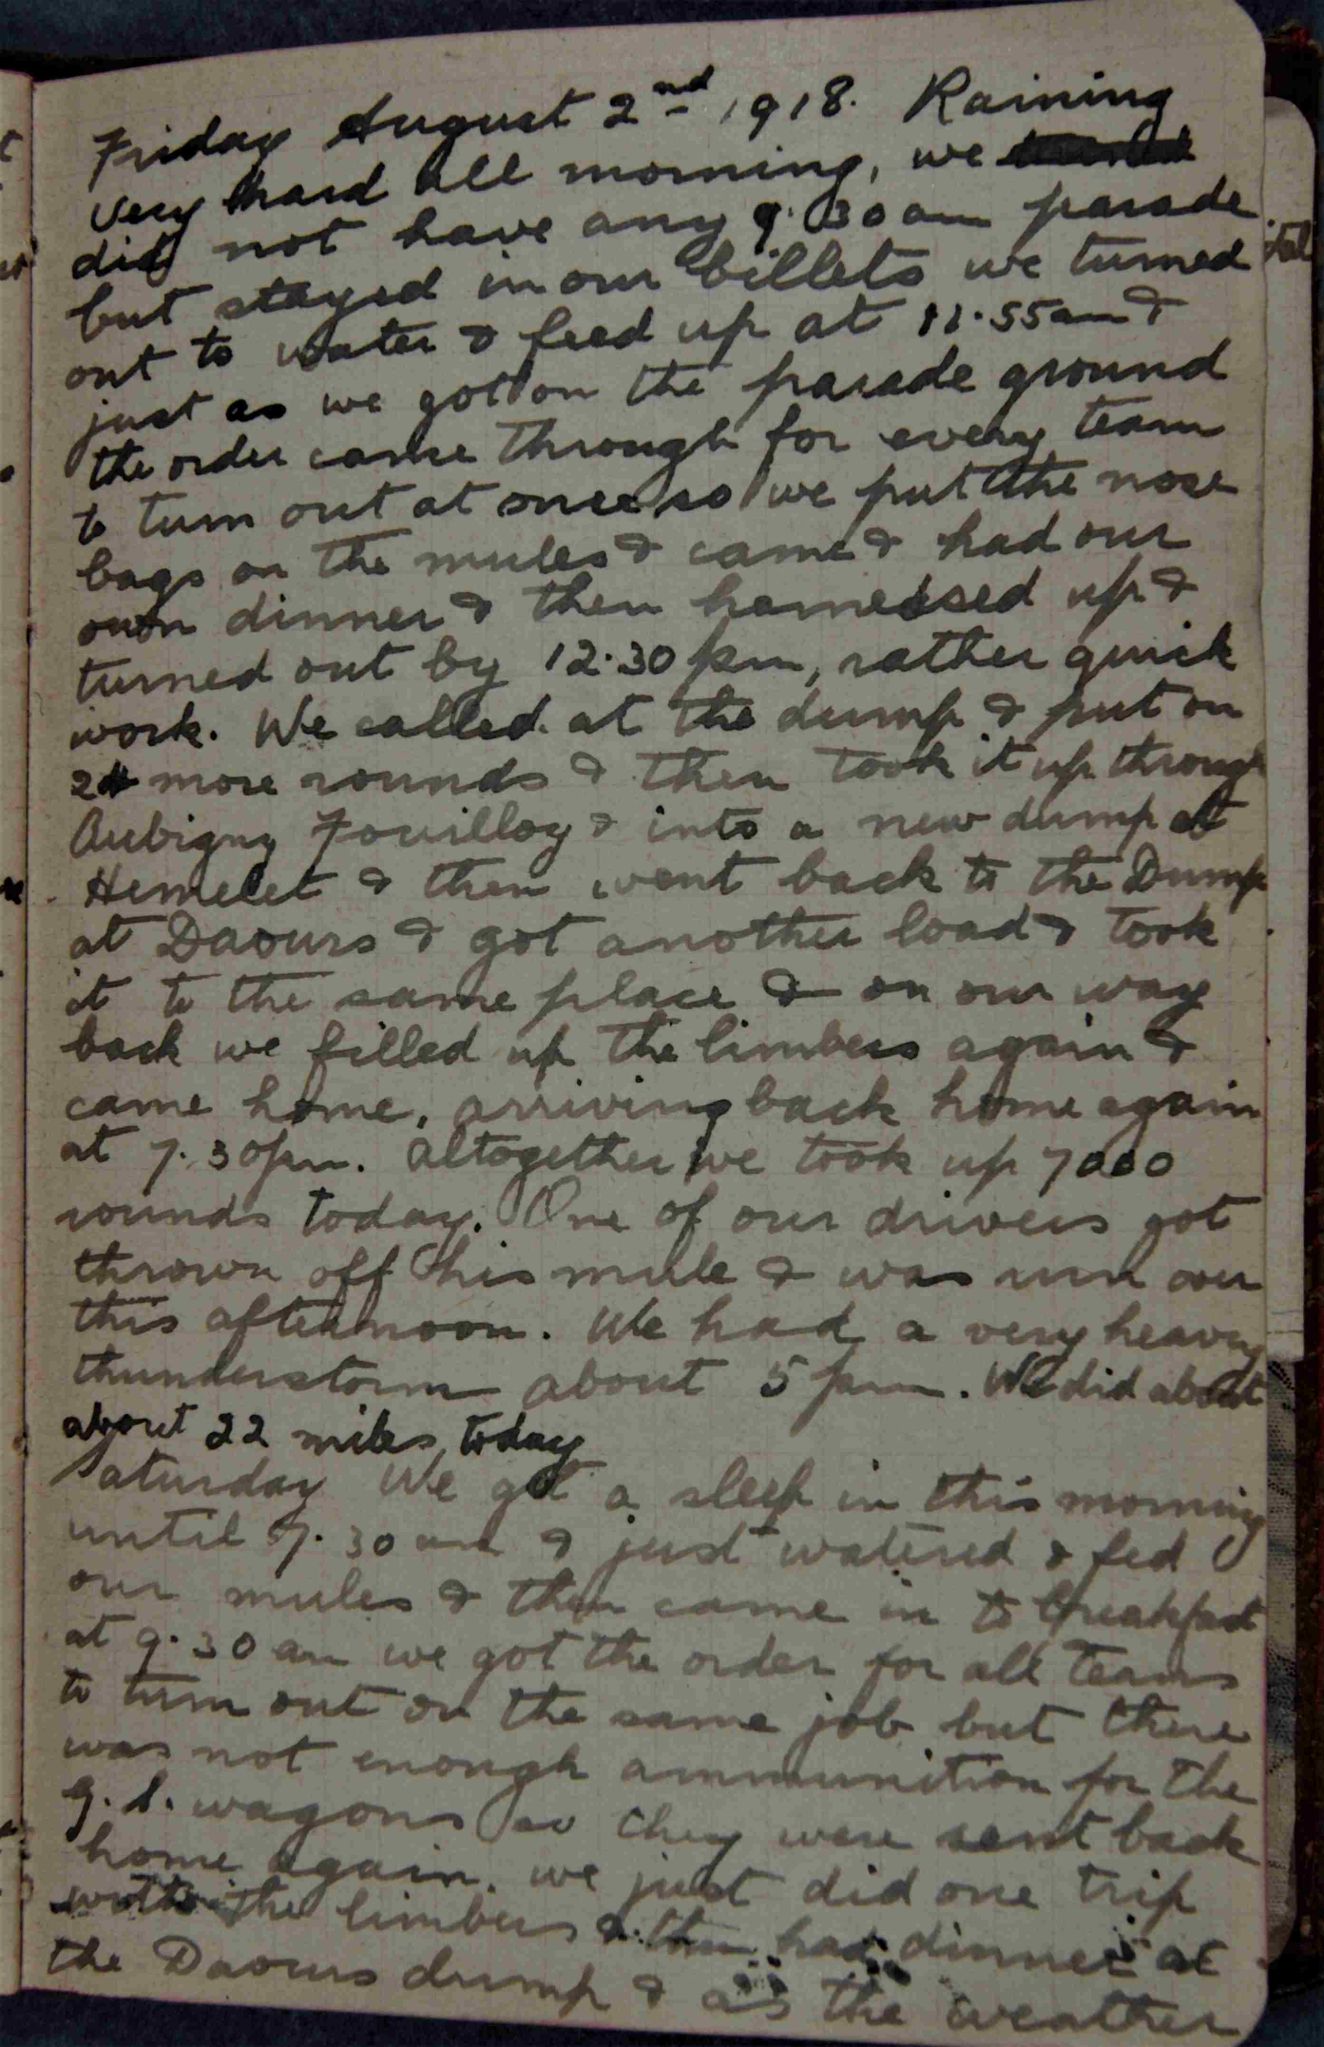 Friday August 2nd 1918. Raining
very hard all morning, we
did not have any 9.30am parade
but stayed in our billets we turned
out to water & feed up at 11.55am &
just as we got on the parade ground
the order came through for every team
to turn out at once so we put the nose
bags on the mules & came & had our
own dinner & then harnessed up &
turned out by 12.30pm, rather quick
work. We called at the dump & put on
more rounds & then took it up through
Aubigny Fouilloy & into a new dump at
Hemelet & then went back to the Dump
at Daours & got another load & took
it to the same place & on our way
back we filled up the limbers again &
came home, arriving back home again
at 7.30pm. Altogether we took up 7000
rounds today. One of our drivers got
thrown off his mule & was run over
this afternoon. We had a very heavy
thunderstorm about 5pm. We did about
about 22 miles today
Saturday We got a sleep in this morning
until 7.30am & just watered & fed
our mules & then came in to breakfast
at 9.30am we got the order for all teams
to turn out on the same job but there
was not enough ammunition for the
G.S. wagons so they were sent back
home again. we just did one trip
with the limbers & then had dinner at
the Daours dump & as the weather